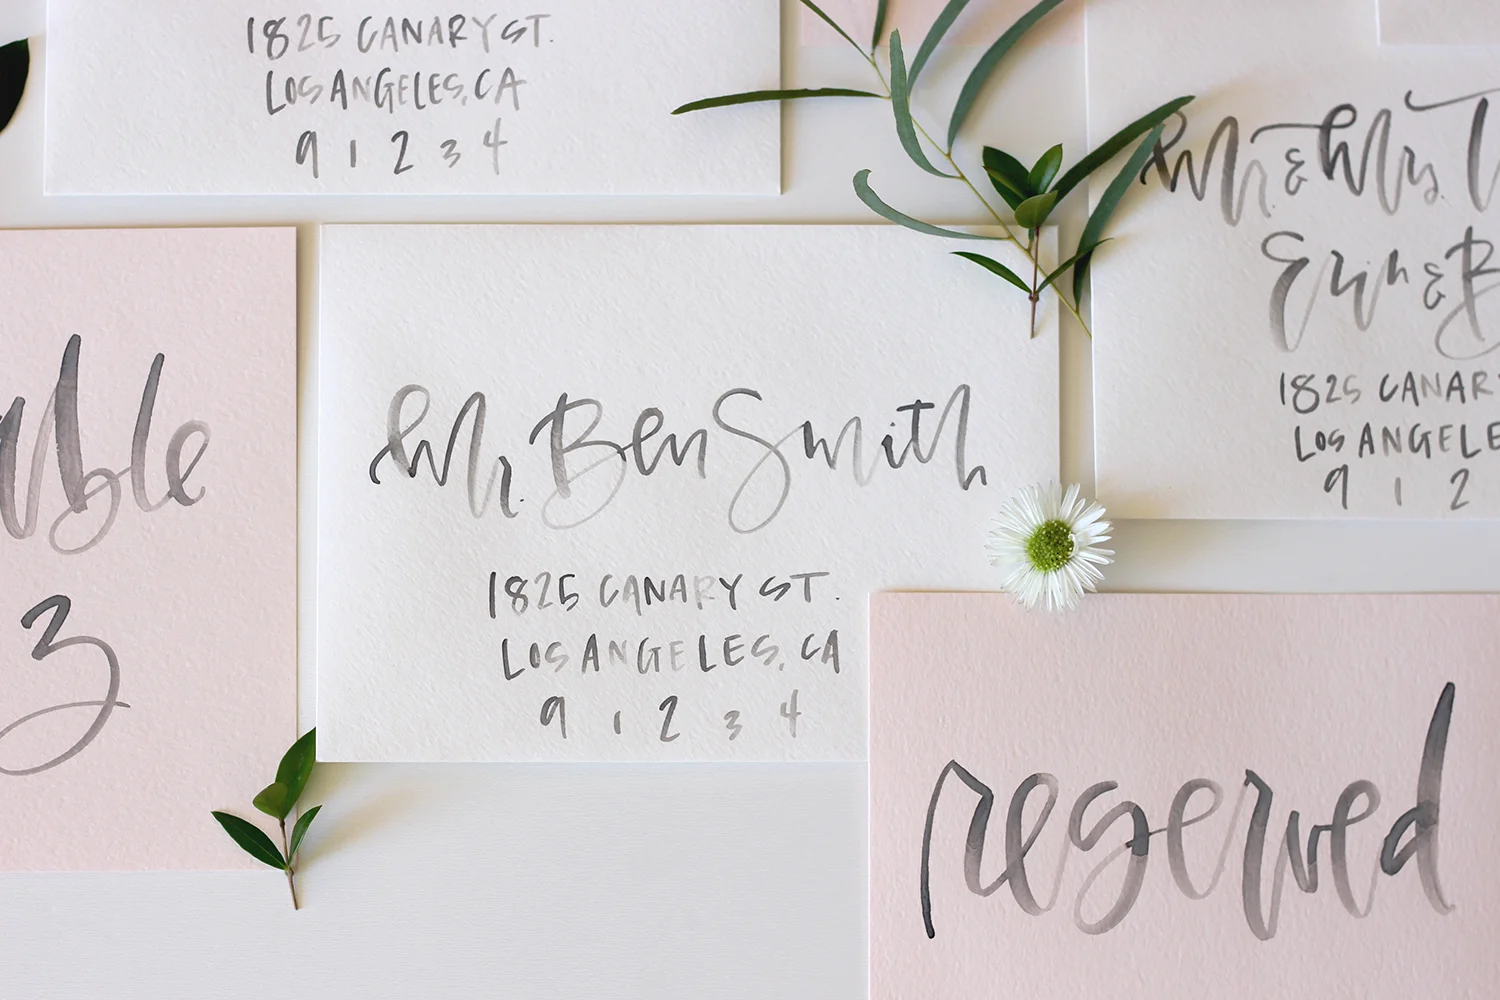 1825 CANARY ST.
LOS ANGELES, CA
9 1 2 3 4
Mr. & Mrs.
Erin & B
1825 CANAR
LOS ANGELE
9 1 2
able
3
Mr. Ben Smith
1825 CANARY ST.
LOS ANGELES, CA
9 1 2 3 4
reserved